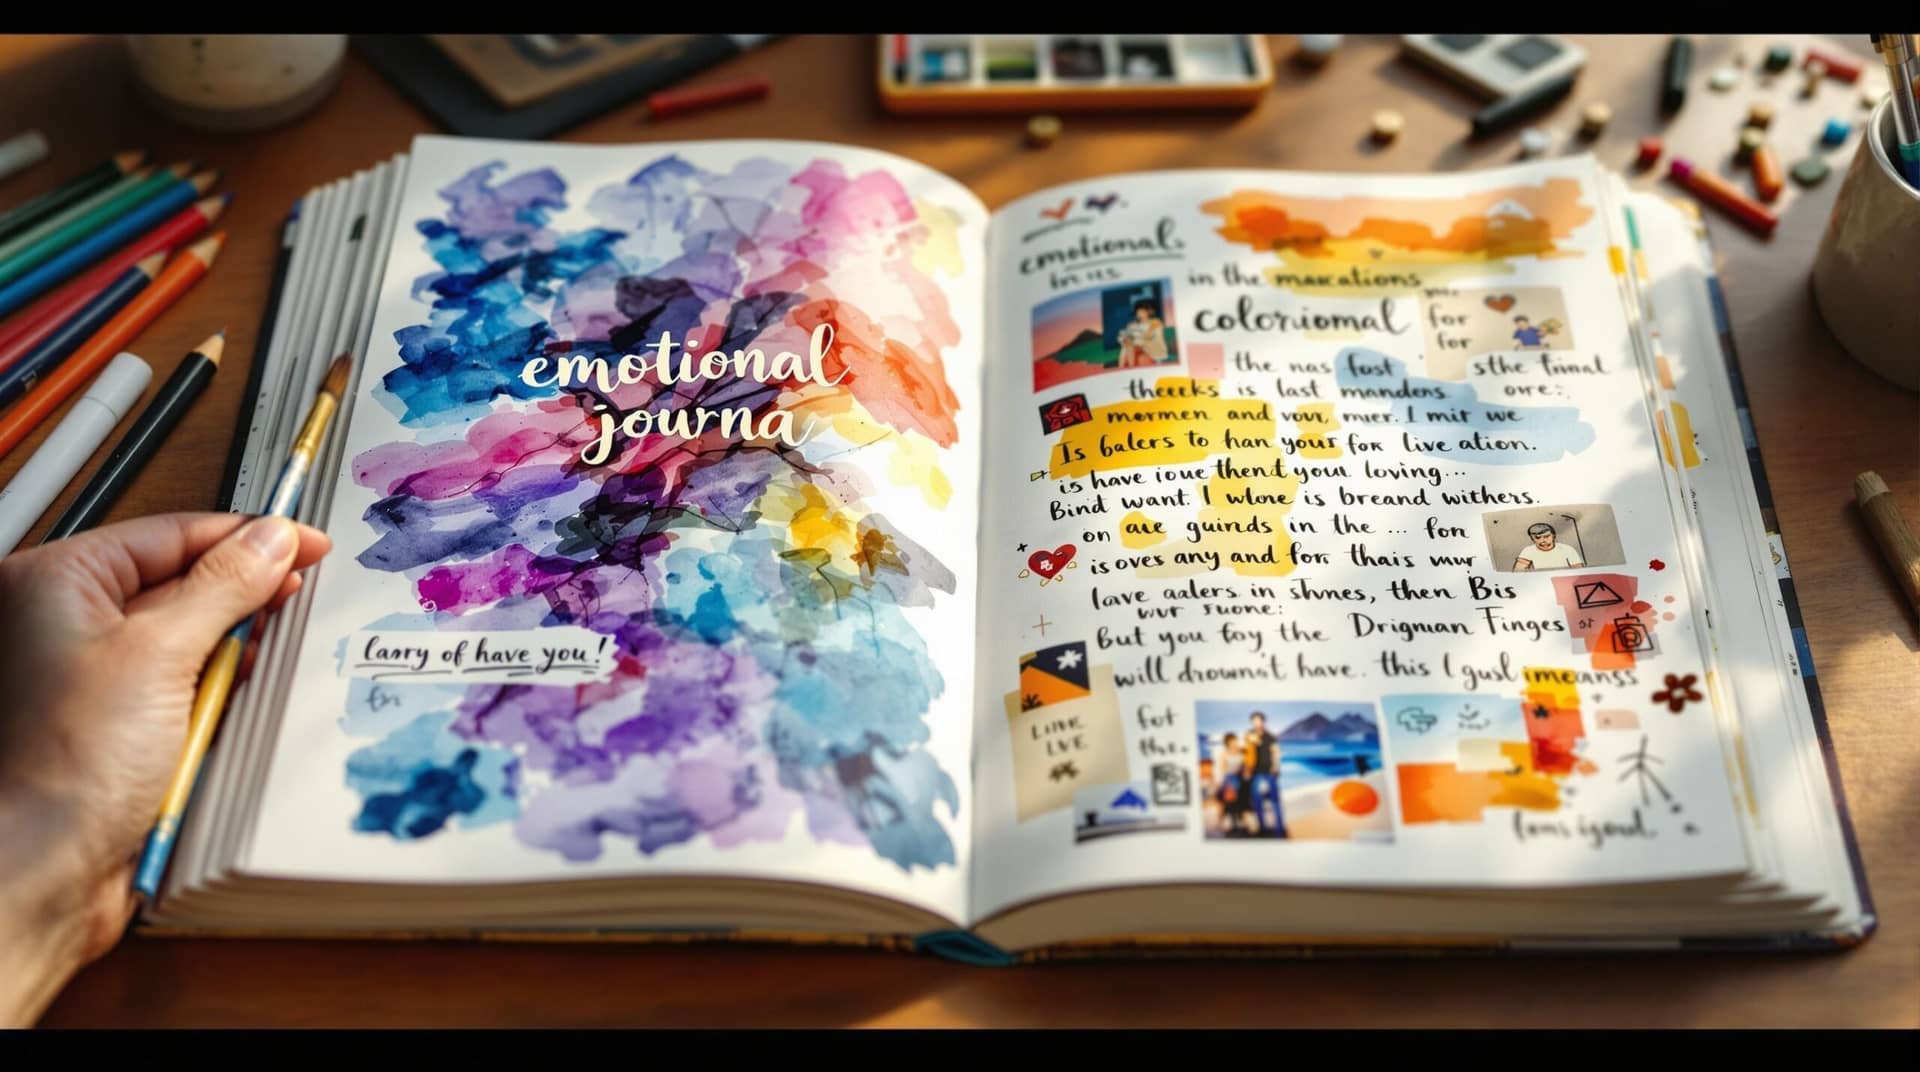 emotional
journa
larry of have you!
emotional.
in the maracations
coloriomal
for
for
the nas fost
sthe trinal
theeeks is last mandens
ore:.
mormen and vour, mier. I mit we
Is balers to han your for live ation.
is have ioue thent your loving...
Bind want. I wlone is breand withers.
on aie guinds in the ... for
is oves any and for thais mur
lave aalers in Shnes, then Bis
wur suone:
But you foy the Drigman Finges
will drowno't have. this I gusl imeanss
LIVE
LVE
for
the.